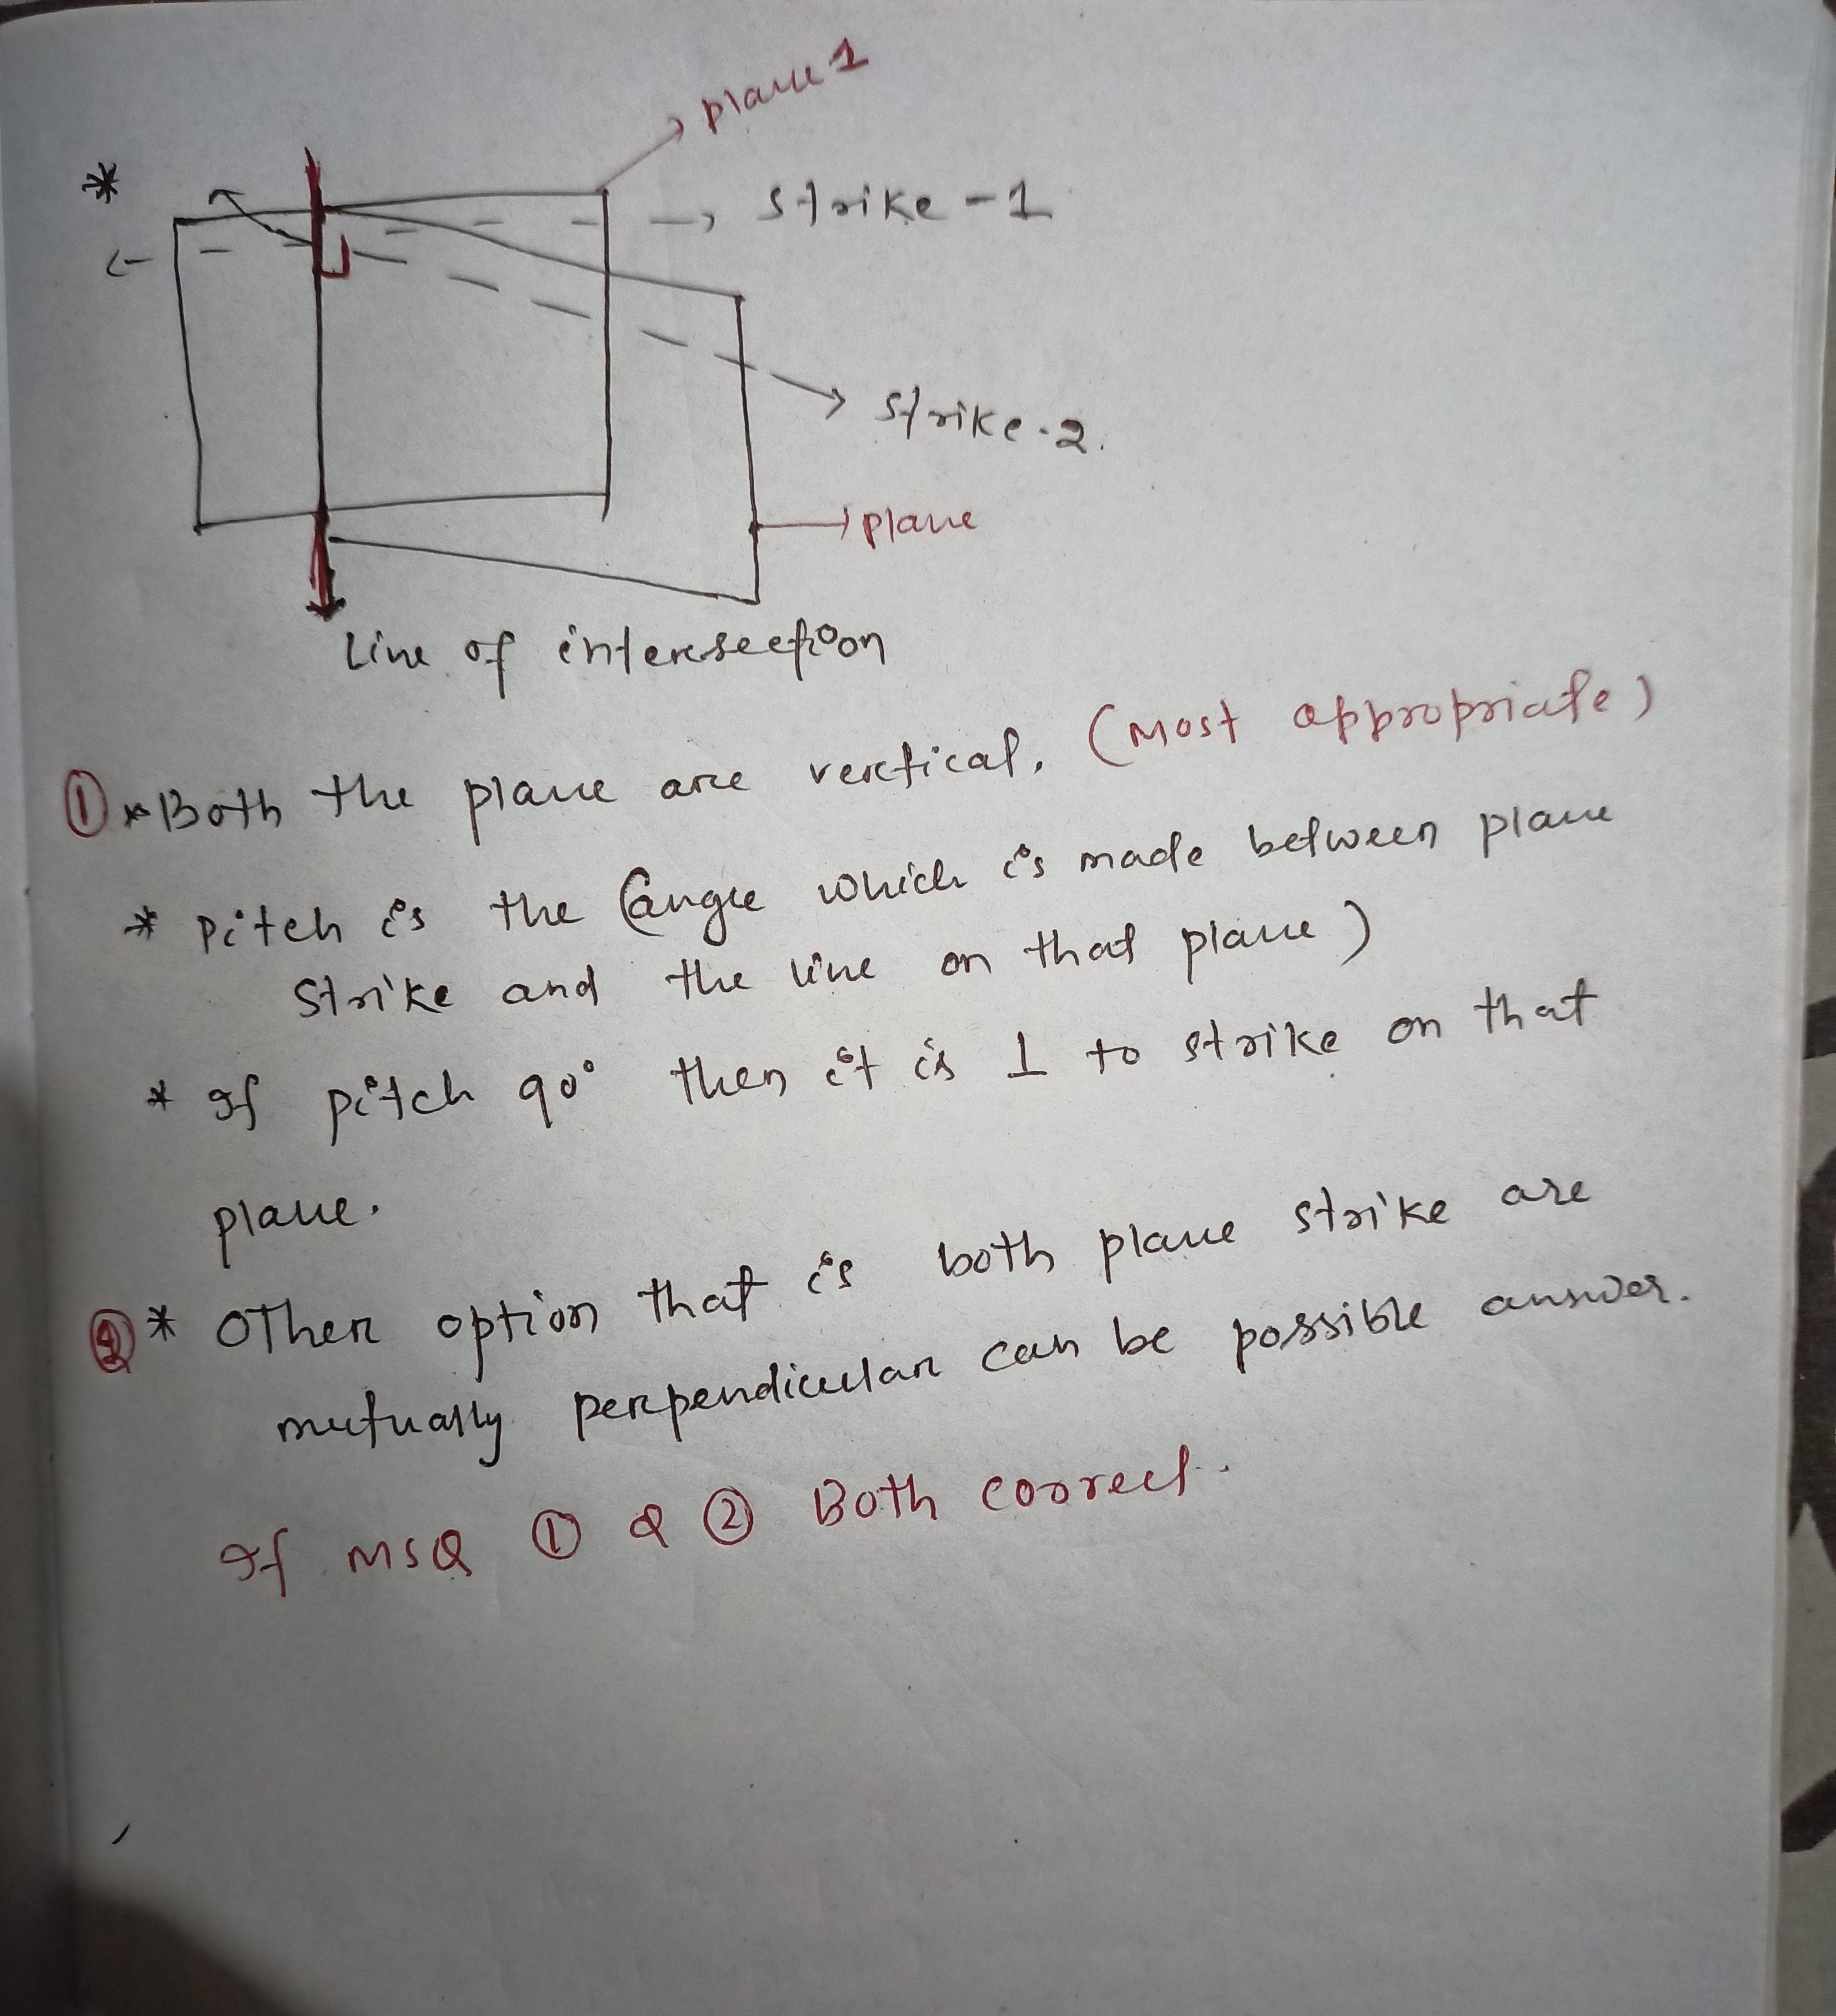 plane 1
*
Strike - 1
Strike - 2.
plane
Line of intersection
① * Both the plane are vertical. (Most appropriate)
* Pitch is the (angle which is made between plane
Strike and the line on that plane)
* If pitch 90° then it is ⊥ to strike on that
plane.
② * Other option that is both plane strike are
mutually perpendicular can be possible answer.
If MSQ ① & ② Both correct.